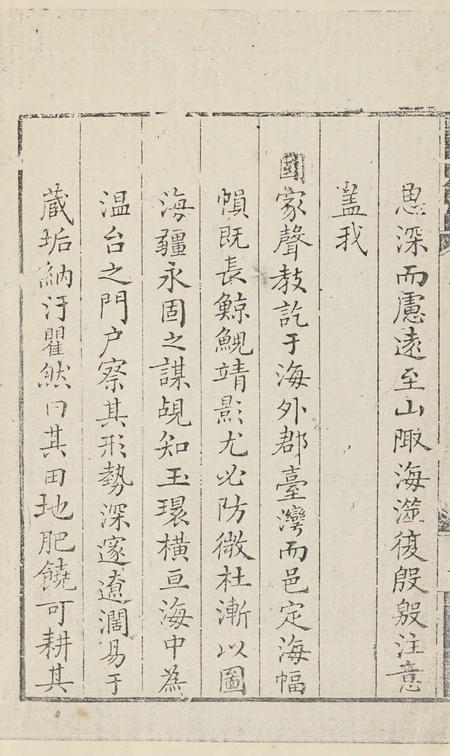 思深而慮遠至山陬海澨復殷殷注意
蓋我
國家聲敎訖于海外郡臺灣而邑定海幅
𢄙既長鯨鯢靖影尤必防微杜漸以圖
海疆永固之謀覘知玉環橫亘海中為
温台之門户察其形勢深邃遼濶易于
藏垢納汙瞿然曰其田地肥饒可耕其